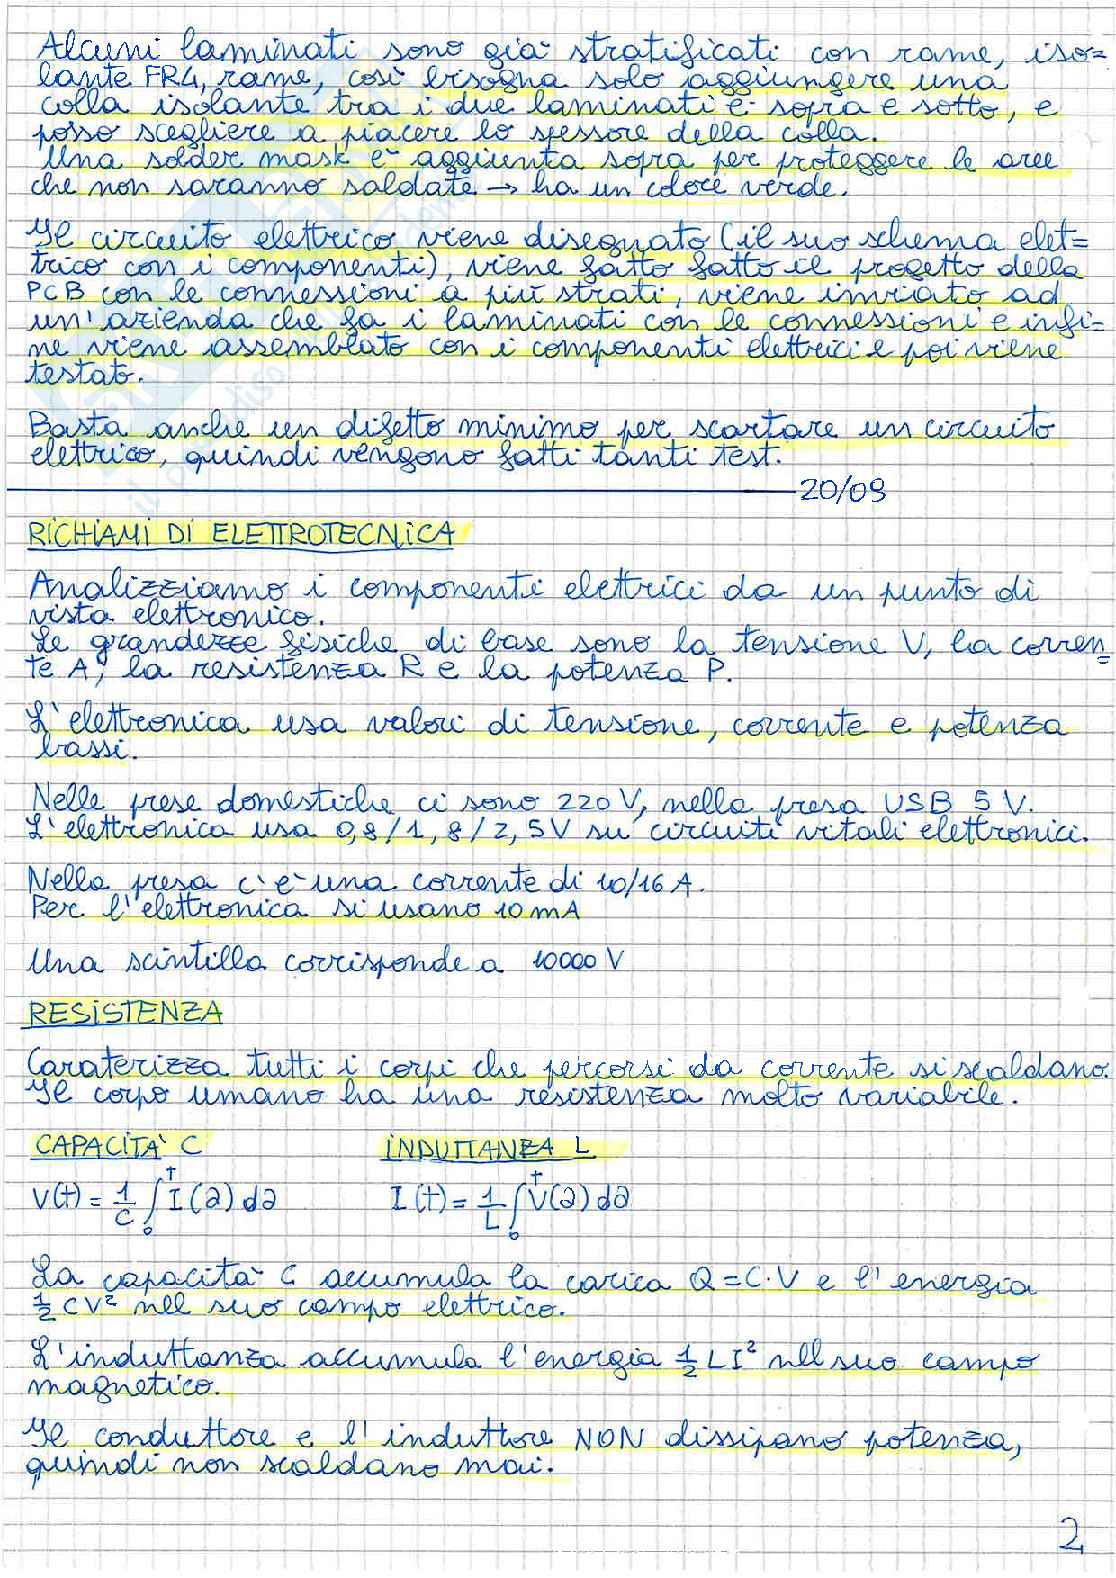 Alcuni laminati sono già stratificati con rame, iso=
lante FR4, rame, così bisogna solo aggiungere una
colla isolante tra i due laminati e sopra e sotto, e
posso scegliere a piacere lo spessore della colla.
Una solder mask è aggiunta sopra per proteggere le aree
che non saranno saldate → ha un colore verde.
Il circuito elettrico viene disegnato (il suo schema elet=
trico con i componenti), viene fatto fatto il progetto della
PCB con le connessioni a più strati, viene inviato ad
un'azienda che fa i laminati con le connessioni e infi=
ne viene assemblato con i componenti elettrici e poi viene
testato.
Basta anche un difetto minimo per scartare un circuito
elettrico, quindi vengono fatti tanti test.
20/09
RICHIAMI DI ELETTROTECNICA
Analizziamo i componenti elettrici da un punto di
vista elettronico.
Le grandezze fisiche di base sono la tensione V, la corren=
te A, la resistenza R e la potenza P.
L'elettronica usa valori di tensione, corrente e potenza
bassi.
Nelle prese domestiche ci sono 220 V, nella presa USB 5 V.
L'elettronica usa 0,8/1,8/2,5V su circuiti vitali elettronici.
Nella presa c'è una corrente di 10/16 A.
Per l'elettronica si usano 10 mA
Una scintilla corrisponde a 10000 V
RESISTENZA
Caraterizza tutti i corpi che percorsi da corrente si scaldano.
Il corpo umano ha una resistenza molto variabile.
CAPACITÀ C INDUTTANZA L
V(t) = 1/C ∫₀ᵗ I(∂) d∂ I(t) = 1/L ∫₀ᵗ V(∂) d∂
La capacità C accumula la carica Q = C·V e l'energia
½ CV² nel suo campo elettrico.
L'induttanza accumula l'energia ½ LI² nel suo campo
magnetico.
Il conduttore e l'induttore NON dissipano potenza,
quindi non scaldano mai.
2